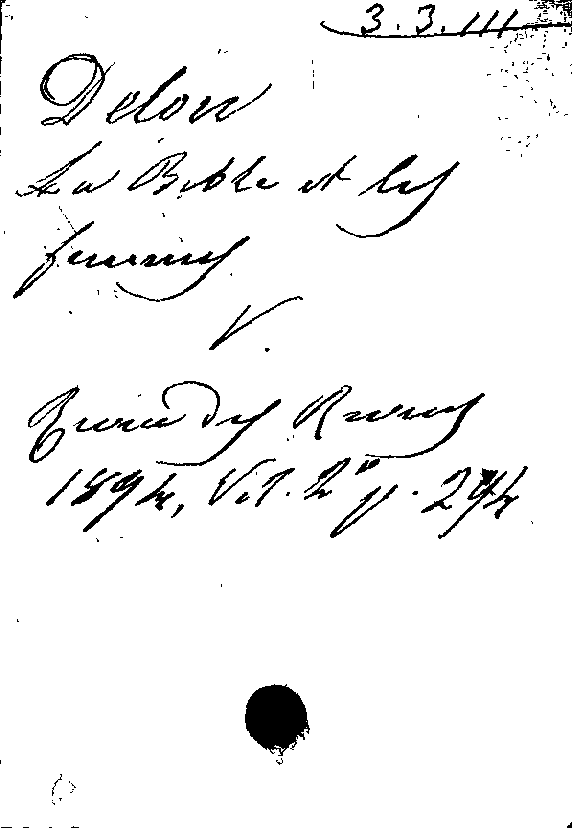 3.3.111
Delon
La Bible et les
femmes
V.
Revue des Revues
1894, Vol. 2º p. 294